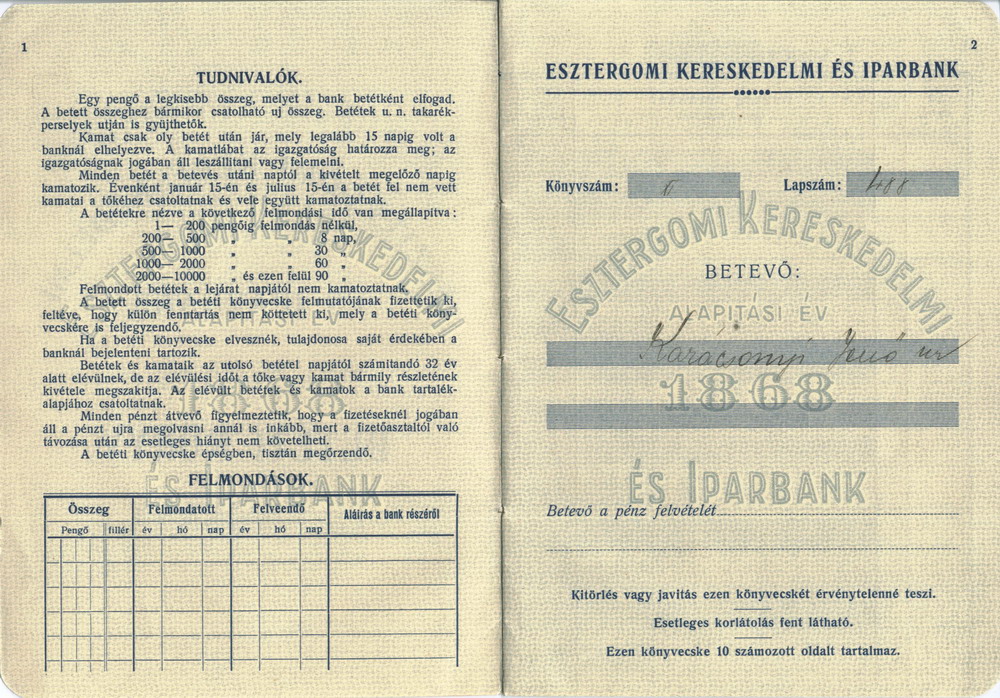 1
TUDNIVALÓK.
Egy pengő a legkisebb összeg, melyet a bank betétként elfogad.
A betett összeghez bármikor csatolható uj összeg. Betétek u. n. takarék-
perselyek utján is gyüjthetők.
Kamat csak oly betét után jár, mely legalább 15 napig volt a
banknál elhelyezve. A kamatlábat az igazgatóság határozza meg; az
igazgatóságnak jogában áll leszállitani vagy felemelni.
Minden betét a betevés utáni naptól a kivételt megelőző napig
kamatozik. Évenként január 15-én és julius 15-én a betét fel nem vett
kamatai a tőkéhez csatoltatnak és vele együtt kamatoztatnak.
A betétekre nézve a következő felmondási idő van megállapitva:
1— 200 pengőig felmondás nélkül,
200— 500 „ „ 8 nap,
500— 1000 „ „ 30 „
1000— 2000 „ „ 60 „
2000—10000 „ és ezen felül 90 „
Felmondott betétek a lejárat napjától nem kamatoztatnak.
A betett összeg a betéti könyvecske felmutatójának fizettetik ki,
feltéve, hogy külön fenntartás nem köttetett ki, mely a betéti köny-
vecskére is feljegyzendő.
Ha a betéti könyvecske elvesznék, tulajdonosa saját érdekében a
banknál bejelenteni tartozik.
Betétek és kamataik az utolsó betétel napjától számitandó 32 év
alatt elévülnek, de az elévülési időt a tőke vagy kamat bármily részletének
kivétele megszakitja. Az elévült betétek és kamatok a bank tartalék-
alapjához csatoltatnak.
Minden pénzt átvevő figyelmeztetik, hogy a fizetéseknél jogában
áll a pénzt ujra megolvasni annál is inkább, mert a fizetőasztaltól való
távozása után az esetleges hiányt nem követelheti.
A betéti könyvecske épségben, tisztán megőrzendő.
FELMONDÁSOK.
Összeg Felmondatott Felveendő Aláírás a bank részéről
Pengő fillér év hó nap év hó nap
2
ESZTERGOMI KERESKEDELMI ÉS IPARBANK
Könyvszám: Lapszám: 488
ESZTERGOMI KERESKEDELMI
BETEVŐ:
ALAPITÁSI ÉV
Karácsonyi Jenő ur
1868
ÉS IPARBANK
Betevő a pénz felvételét
Kitörlés vagy javitás ezen könyvecskét érvénytelenné teszi.
Esetleges korlátolás fent látható.
Ezen könyvecske 10 számozott oldalt tartalmaz.